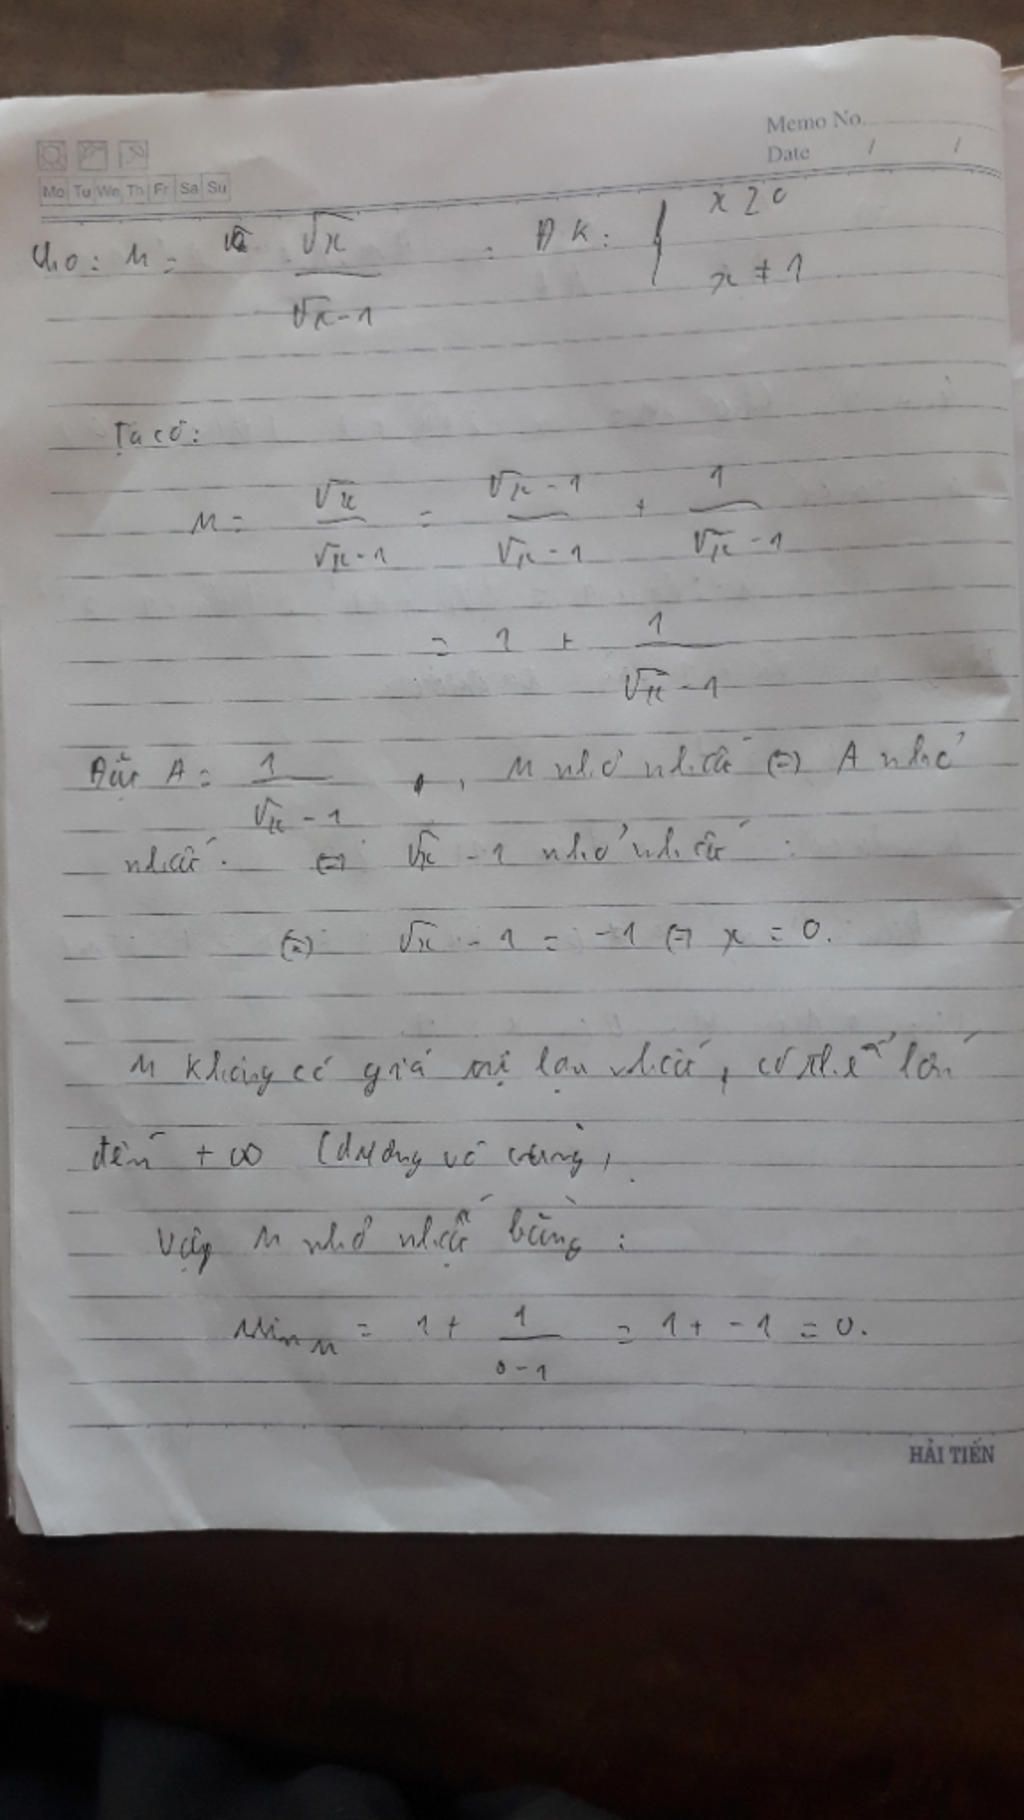 Memo No.
Date / /
Mo Tu We Th Fr Sa Su
Cho: M = √x / (√x - 1) . ĐK: { x ≥ 0
x ≠ 1
Ta có:
M = √x / (√x - 1) = (√x - 1) / (√x - 1) + 1 / (√x - 1)
= 1 + 1 / (√x - 1)
Đặt A = 1 / (√x - 1) , M nhỏ nhất (=) A nhỏ
nhất. (=) √x - 1 nhỏ nhất :
(=) √x - 1 = -1 (=) x = 0.
M không có giá trị lớn nhất, có thể lớn
đến +∞ (dương vô cùng)
Vậy M nhỏ nhất bằng :
Min M = 1 + 1 / (0 - 1) = 1 + -1 = 0.
HẢI TIẾN